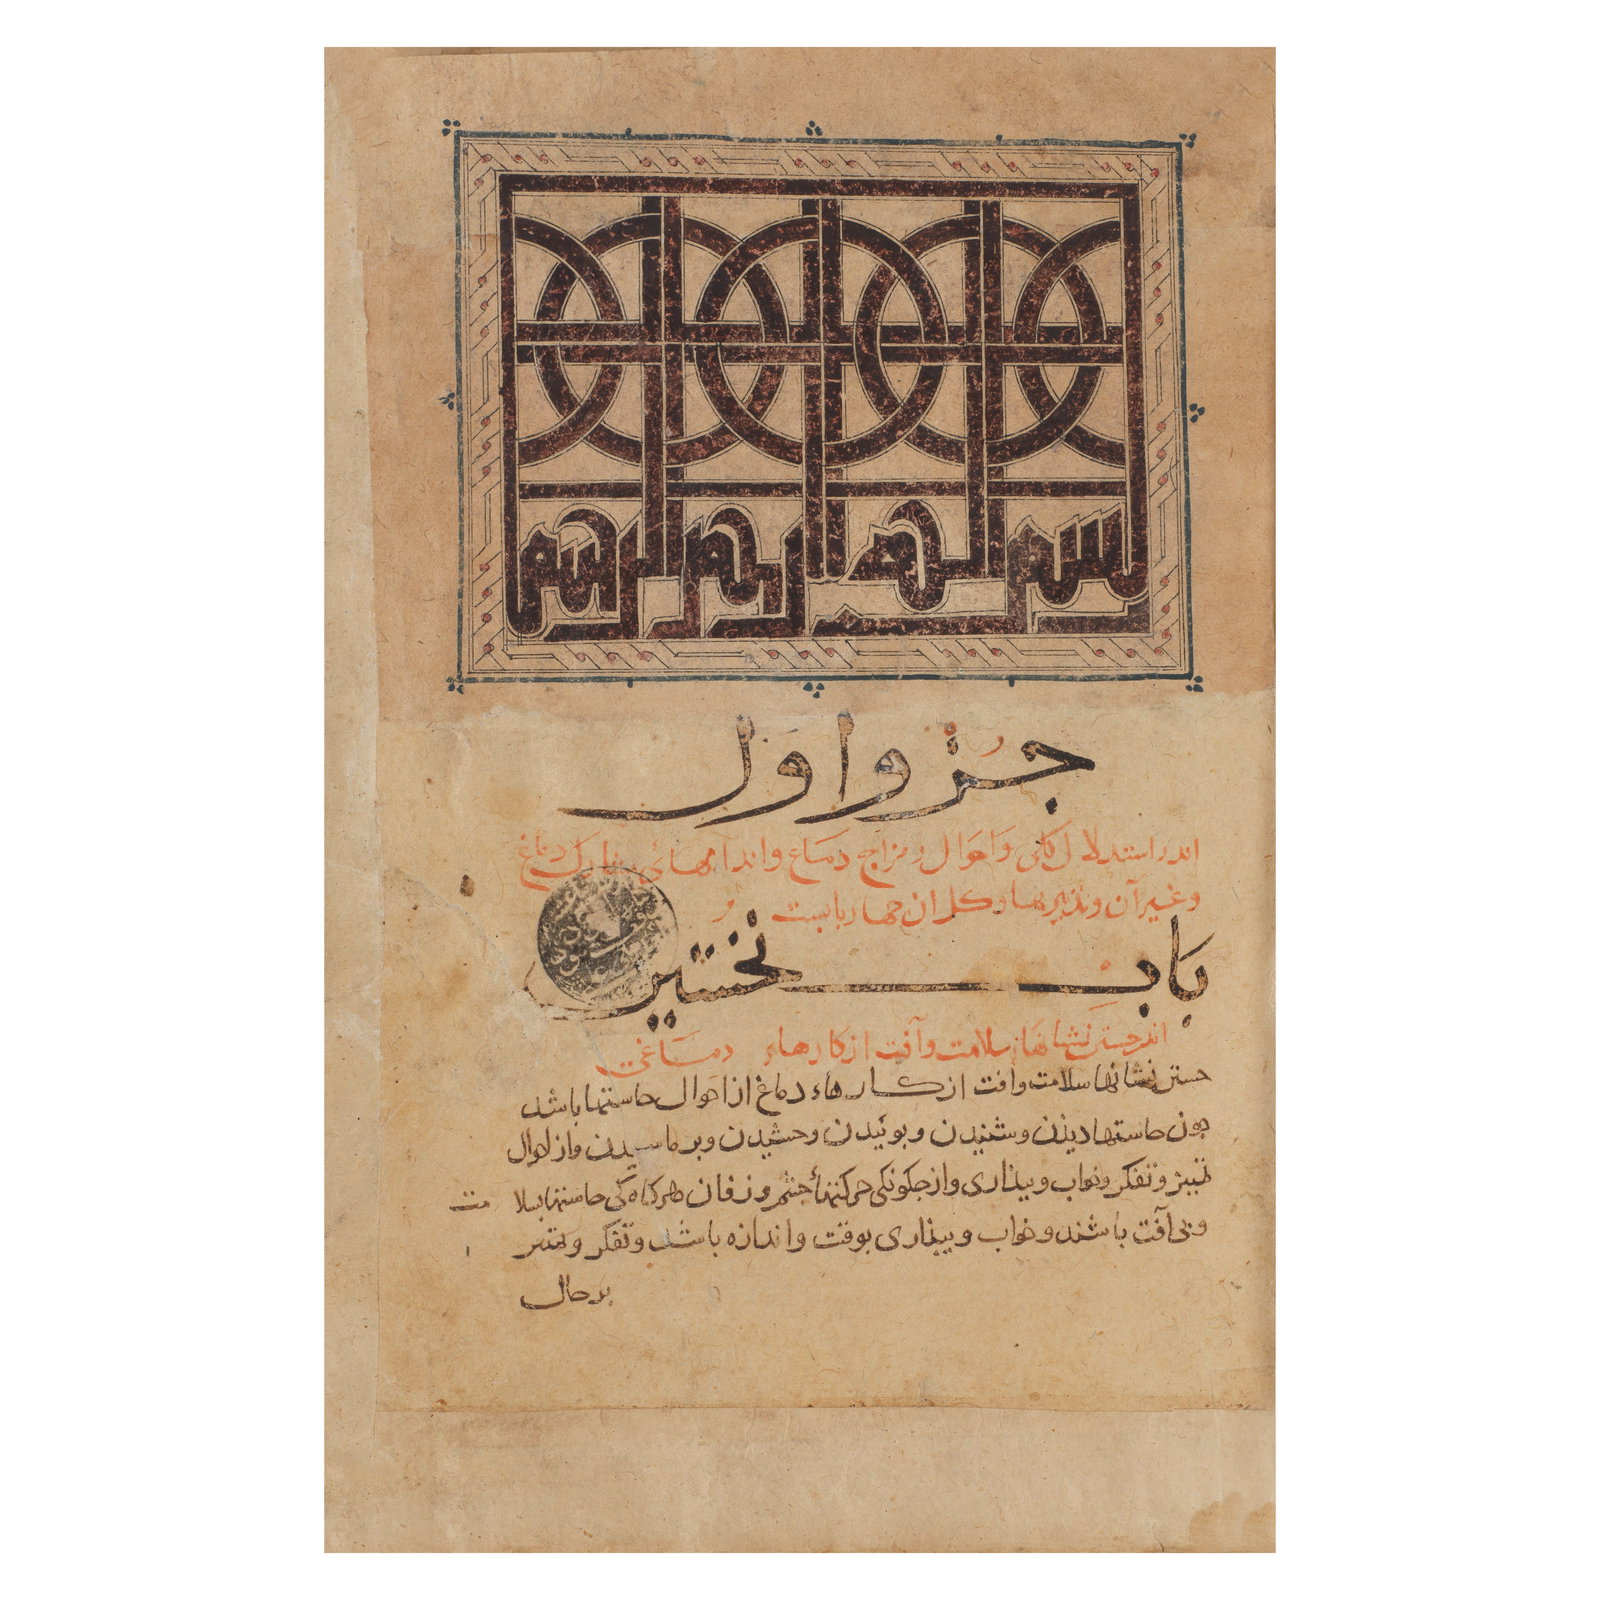 بسم الله الرحمن الرحیم
جزو اول
اندر استدلال کلی و احوال و مزاج دماغ و اندامهای مشارک دماغ
و غیر آن و تدبیرها و کل ان چهار بابست
باب نخستین
اندر جستن نشانهاء سلامت و آفت از کارهاء دماغی
جستن نشانها سلامت و افت از کارهاء دماغ از احوال حاستها باشد
چون حاستها دیدن و شنیدن و بوئیدن و چشیدن و برماسیدن و از احوال
تمییز و تفکر و خواب و بیذاری و از چکونکی حرکتها چشم و زفان هرکاه کی حاستها بسلامت
و بی آفت باشند و خواب و بیذاری بوقت و اندازه باشد و تفکر و تمییز
بر حال